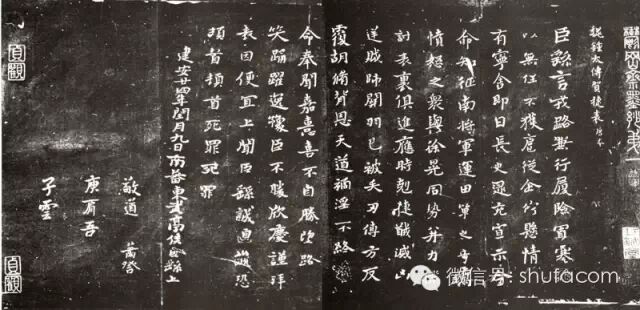 魏鍾太傅賀捷表
臣繇言戎路兼行履險冒寒
以無任不獲扈從企佇懸情
有寧舍即日長史逮充宣示令
命知征南將軍運田單之奇厲
憤怒之衆與徐晃同勢并力
討表裏俱進應時剋捷馘滅凶
逆賊帥關羽已被矢刃傅方反
覆胡脩背恩天道禍淫不終
命奉聞嘉憙喜不自勝望路
笑踊躍逸豫臣不勝欣慶謹拜
表因便宜上聞臣繇誠惶誠恐
頓首頓首死罪死罪
建安廿四年閏月九日南蕃東武亭侯臣繇上
敬道
庾肩吾
子雲
貞觀
貞觀
微信号: shufacom